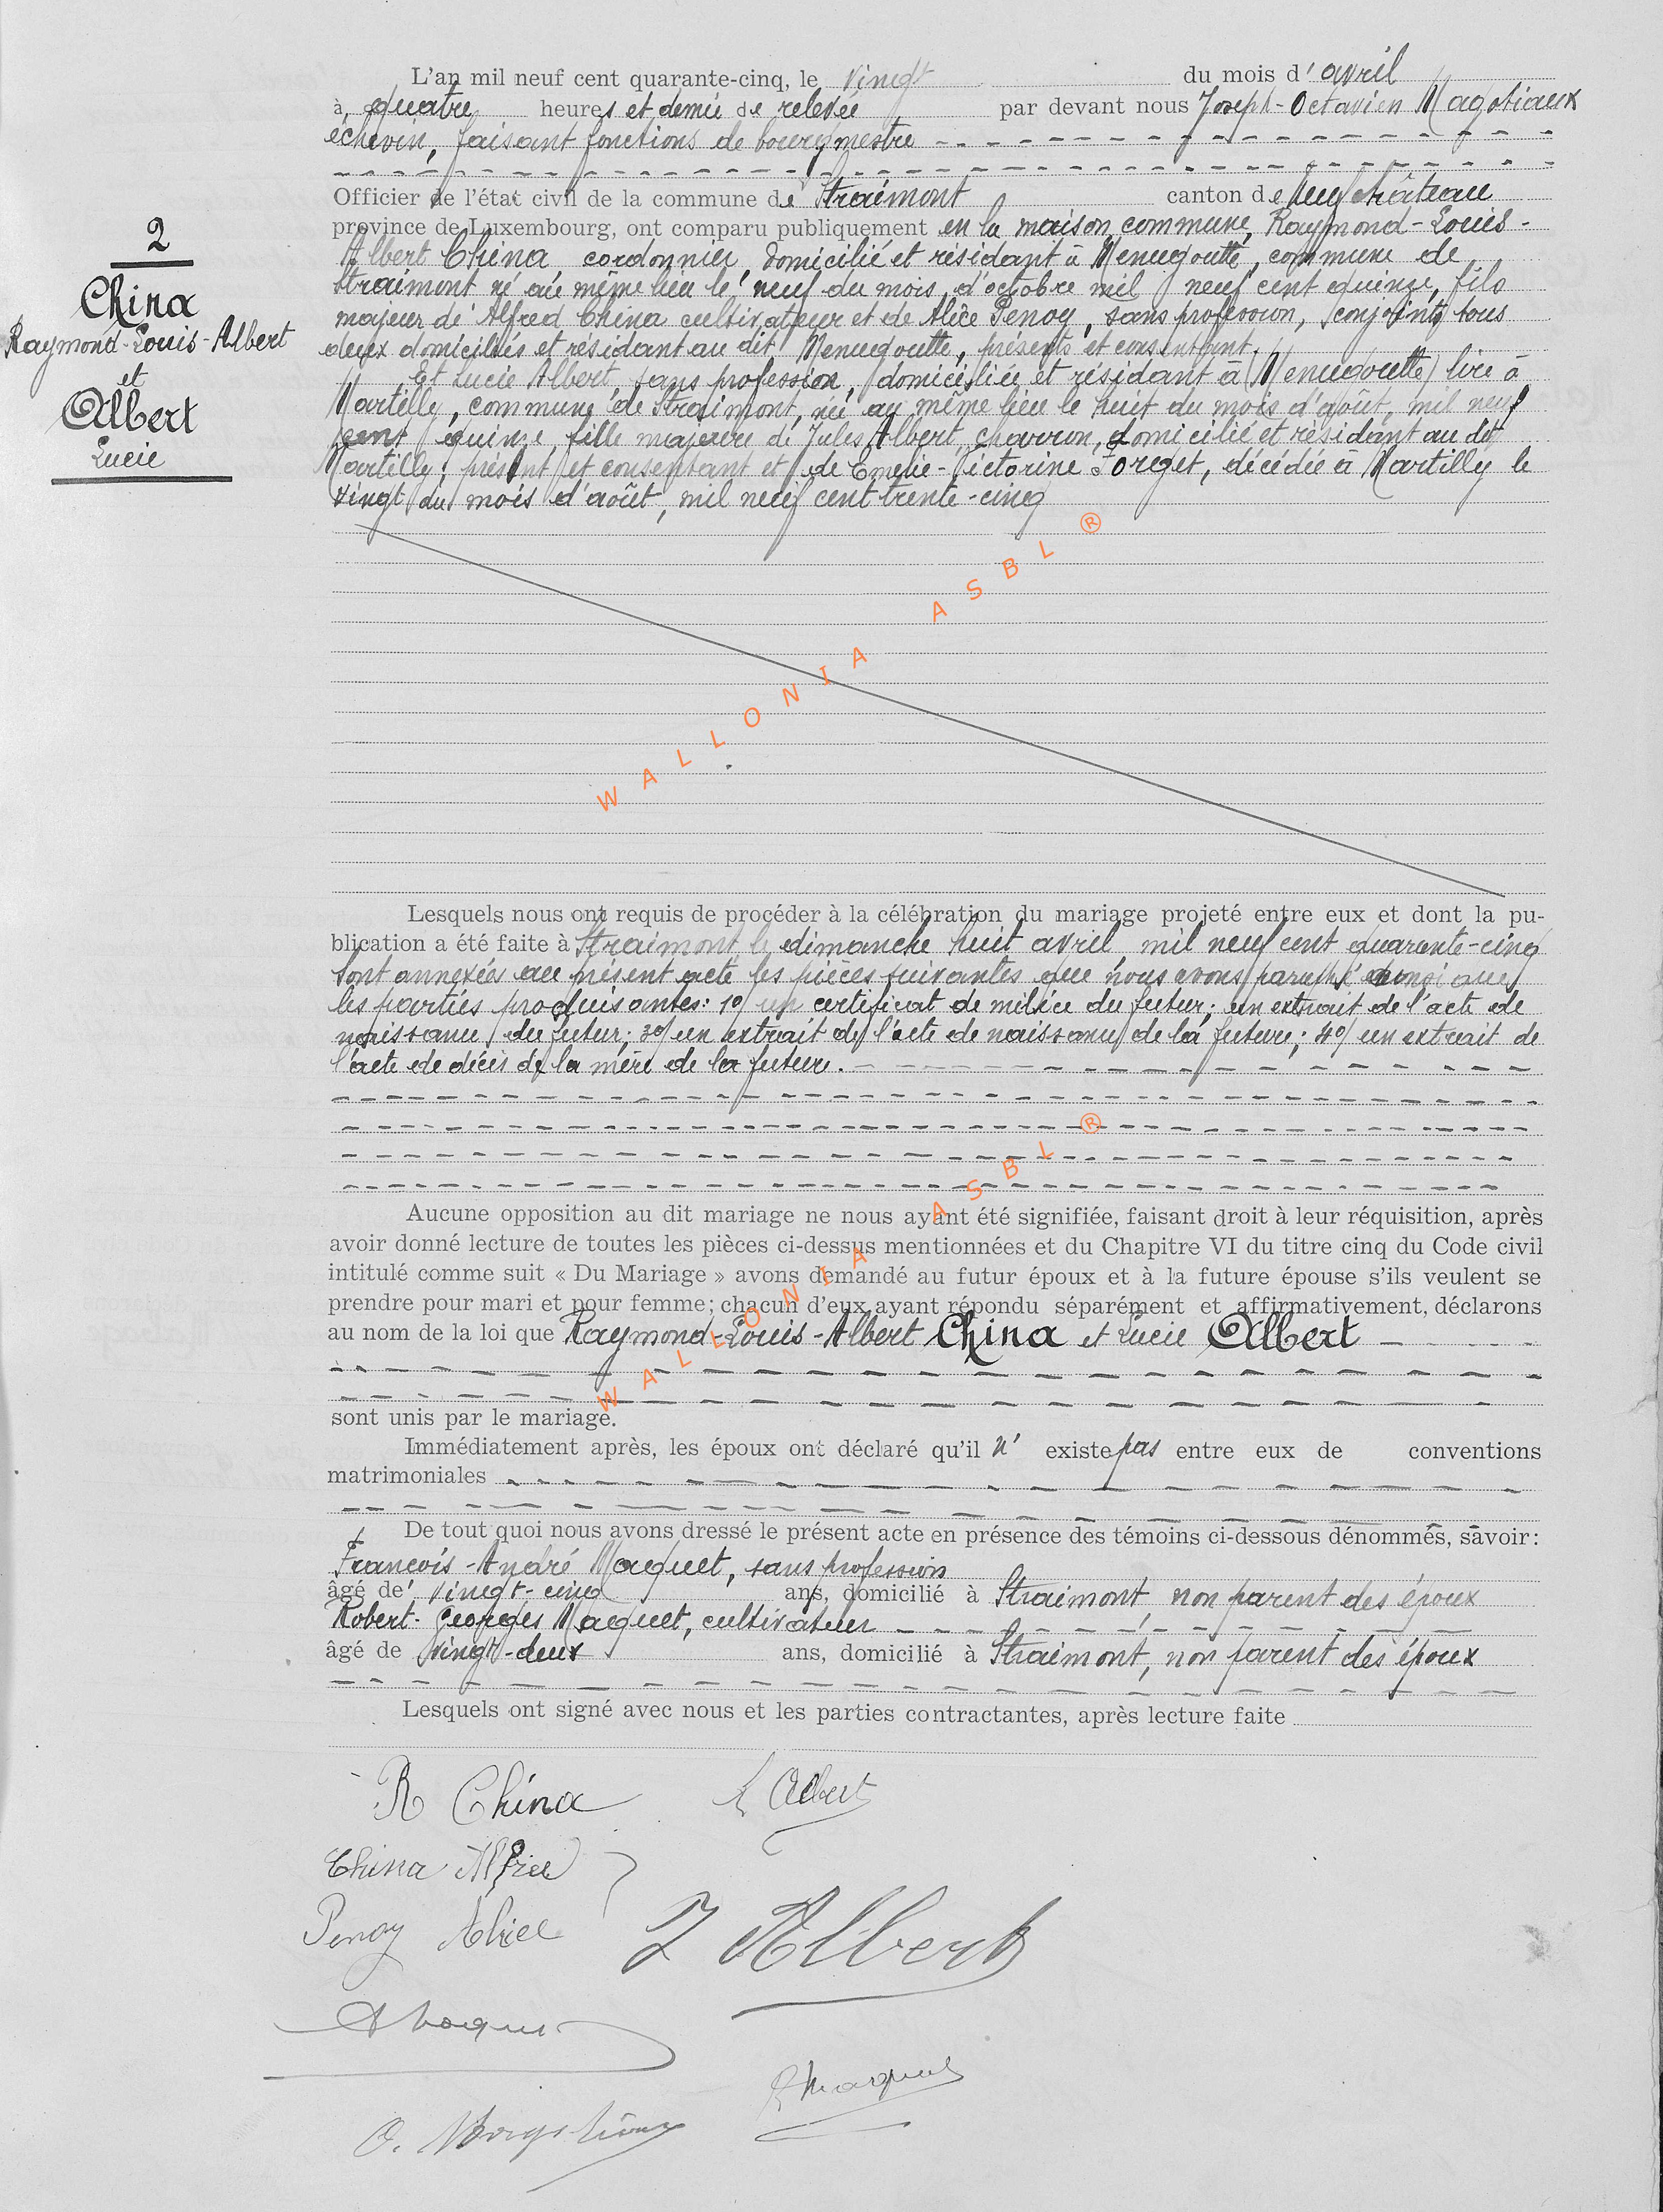 2
China
Raymond-Louis-Albert
et
Albert
Lucie
L'an mil neuf cent quarante-cinq, le vingt du mois d'avril
à quatre heures et demie de relevée par devant nous Joseph-Octavien Magotiaux
échevin, faisant fonctions de bourgmestre
Officier de l'état civil de la commune de Straimont canton de Neufchâteau
province de Luxembourg, ont comparu publiquement en la maison commune, Raymond-Louis-
Albert China, cordonnier, domicilié et résidant à Menugoutte, commune de
Straimont né au même lieu le neuf du mois d'octobre mil neuf cent quinze, fils
majeur de Alfred China cultivateur et de Alice Penoy, sans profession, conjoints tous
deux domiciliés et résidant au dit Menugoutte, présents et consentant.
Et Lucie Albert, sans profession, domiciliée et résidant à (Menugoutte) lire à
Martilly, commune de Straimont, née au même lieu le huit du mois d'août, mil neuf
cent quinze, fille majeure de Jules Albert, charron, domicilié et résidant au dit
Martilly, présent et consentant et de Emelie-Victorine Forget, décédée à Martilly le
vingt du mois d'août, mil neuf cent trente-cinq
WALLONIA ASBL ®
Lesquels nous ont requis de procéder à la célébration du mariage projeté entre eux et dont la pu-
blication a été faite à Straimont, le dimanche huit avril, mil neuf cent quarante-cinq
Sont annexées au présent acte les pièces suivantes que nous avons paraphé que
les parties produisantes: 1º/ un certificat de milice du futur; un extrait de l'acte de
naissance du futur; 3º/ un extrait de l'acte de naissance de la future; 4º/ un extrait de
l'acte de décès de la mère de la future.
WALLONIA ASBL ®
Aucune opposition au dit mariage ne nous ayant été signifiée, faisant droit à leur réquisition, après
avoir donné lecture de toutes les pièces ci-dessus mentionnées et du Chapitre VI du titre cinq du Code civil
intitulé comme suit « Du Mariage » avons demandé au futur époux et à la future épouse s'ils veulent se
prendre pour mari et pour femme; chacun d'eux ayant répondu séparément et affirmativement, déclarons
au nom de la loi que Raymond-Louis-Albert China et Lucie Albert
sont unis par le mariage.
Immédiatement après, les époux ont déclaré qu'il n'existe pas entre eux de conventions
matrimoniales
De tout quoi nous avons dressé le présent acte en présence des témoins ci-dessous dénommés, savoir:
François-André Maquet, sans profession
âgé de vingt-cinq ans, domicilié à Straimont, non parent des époux
Robert-Georges Maquet, cultivateur
âgé de vingt-deux ans, domicilié à Straimont, non parent des époux
Lesquels ont signé avec nous et les parties contractantes, après lecture faite
R China L Albert
China Alfred
Penoy Alice J Albert
A Maquet
R Maquet
O. Magotiaux